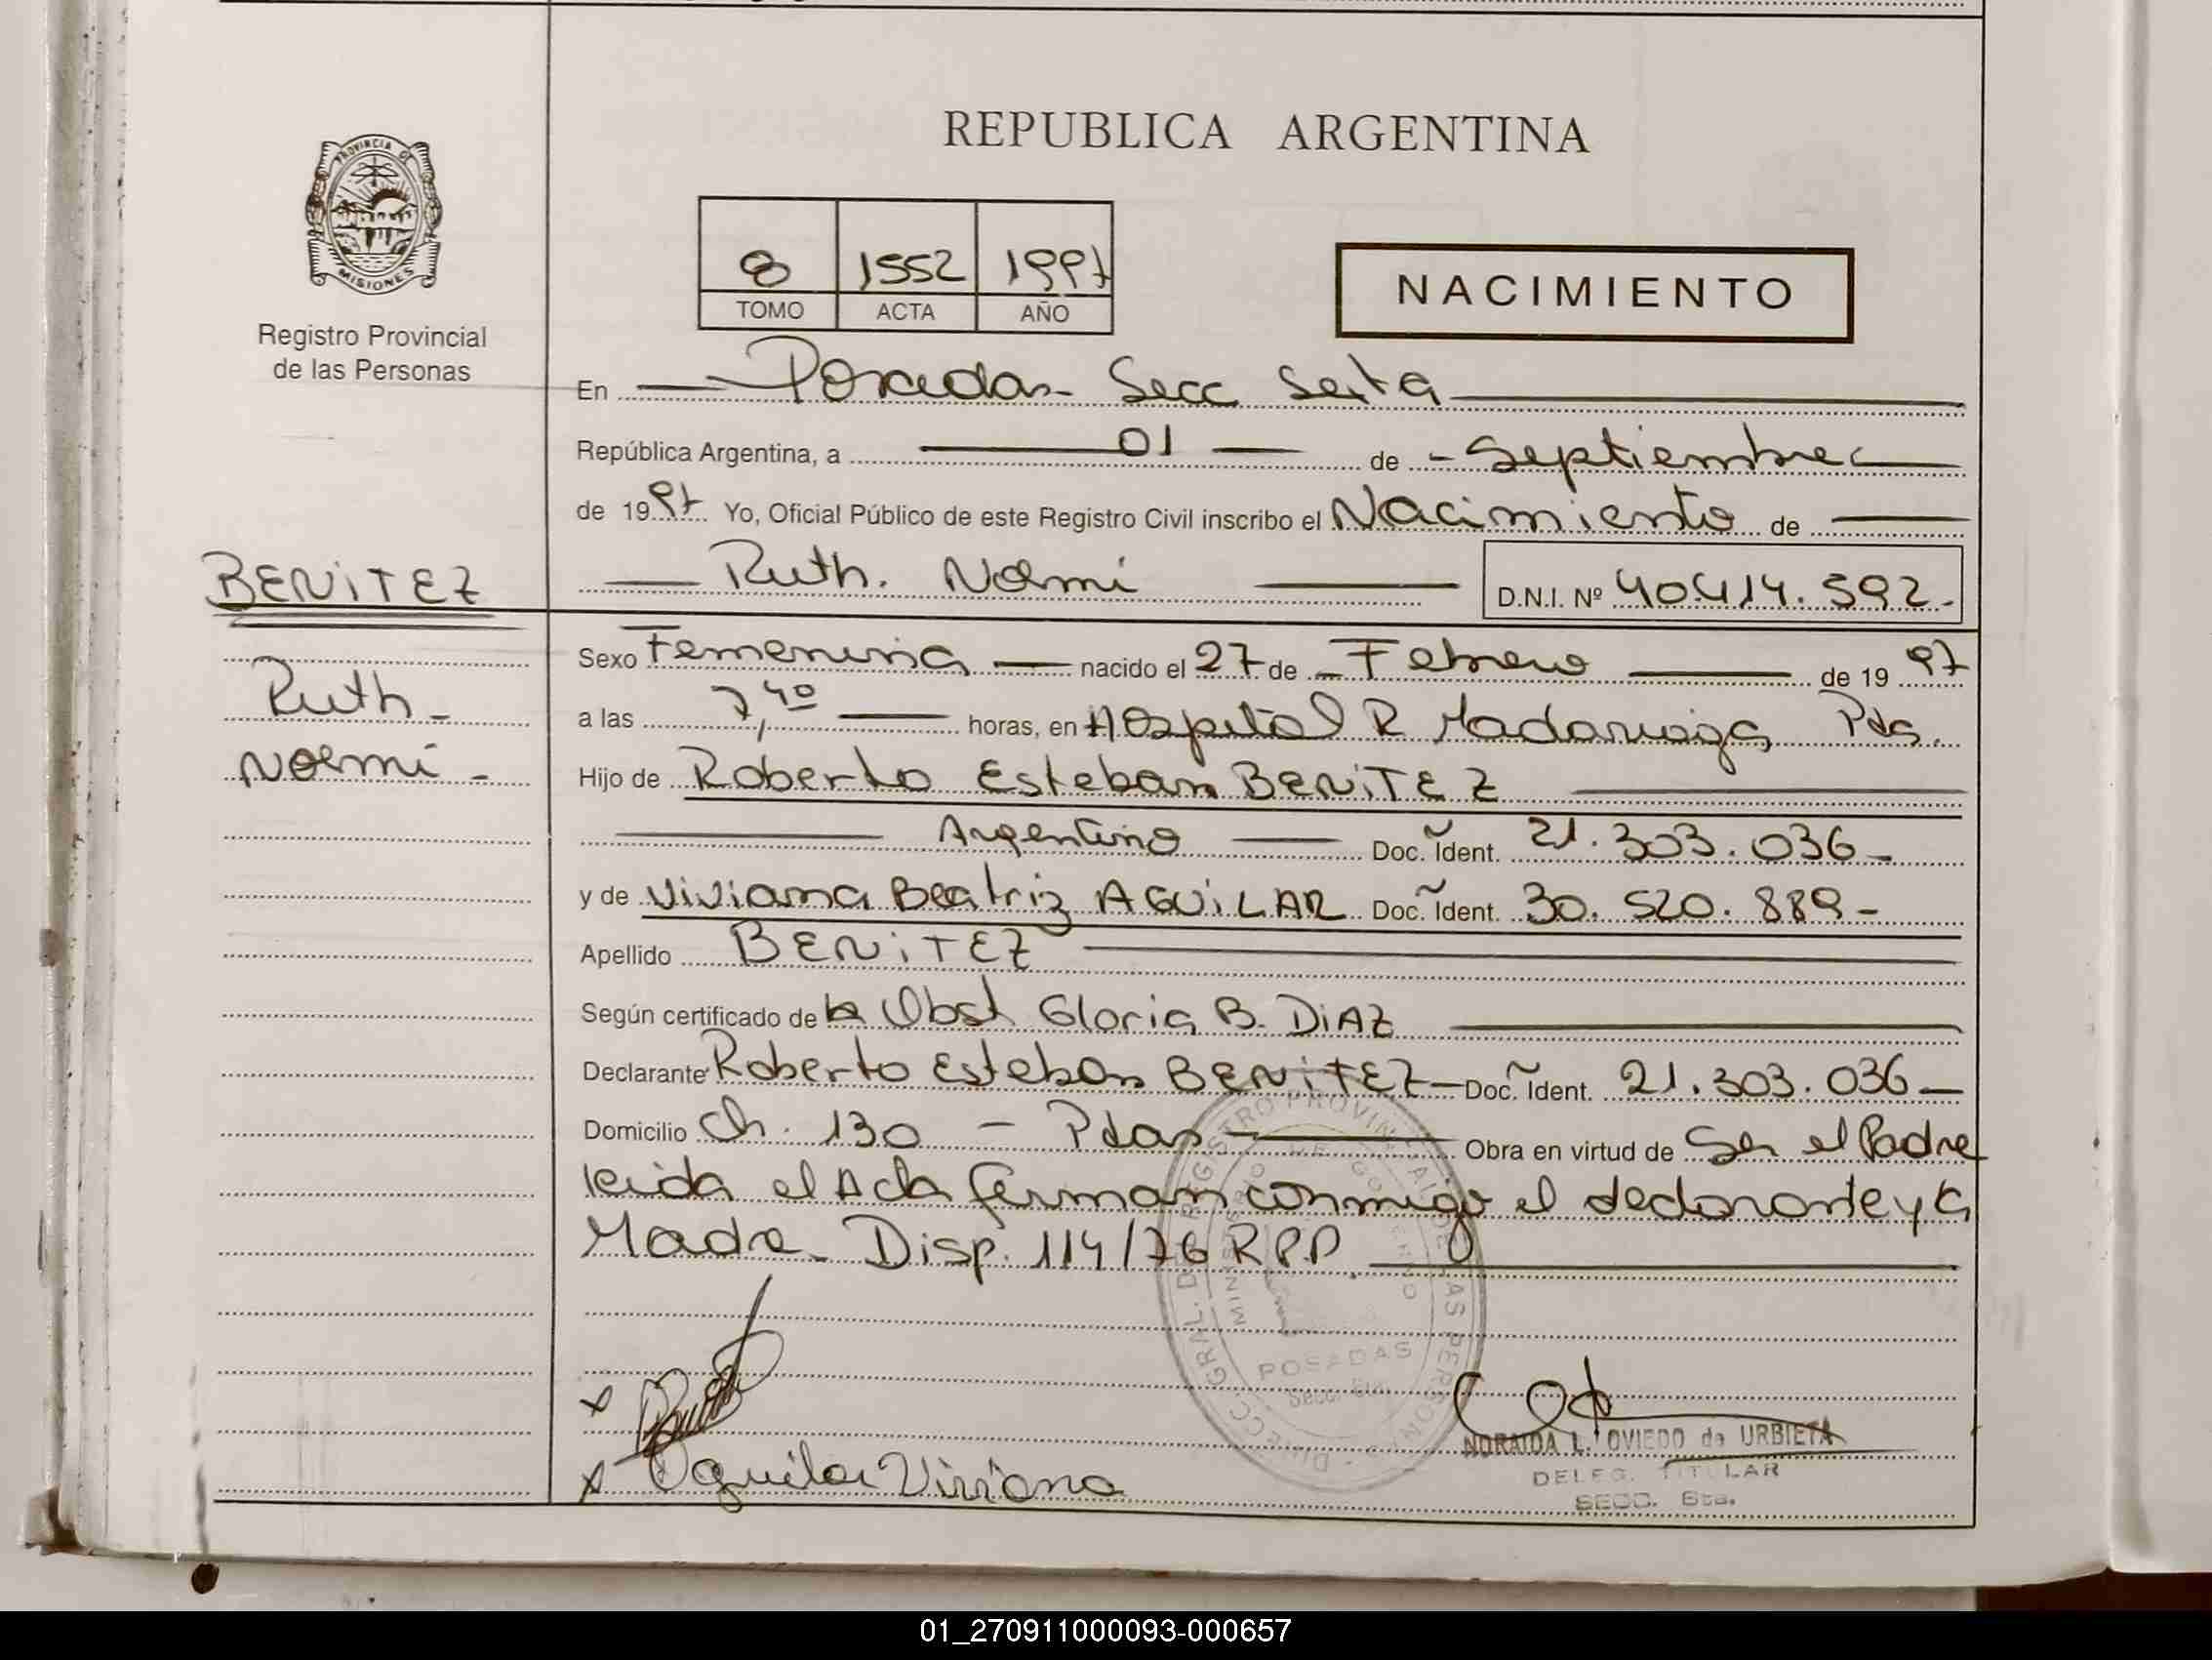 REPUBLICA ARGENTINA
PROVINCIA DE
MISIONES
Registro Provincial
de las Personas
8 1552 1997
TOMO ACTA AÑO
NACIMIENTO
En Posadas Secc Sexta
República Argentina, a 01 de Septiembre
de 1997 Yo, Oficial Público de este Registro Civil inscribo el Nacimiento de
BENITEZ
Ruth. Noemi D.N.I. Nº 40.414.592.
Ruth
Noemi
Sexo Femenina nacido el 27 de Febrero de 1997
a las 7,40 horas, en Hospital R Madariaga Pdas.
Hijo de Roberto Esteban BENITEZ
Argentino Doc. Ident. 21.303.036
y de Viviana Beatriz AGUILAR Doc. Ident. 30.520.889
Apellido BENITEZ
Según certificado de la Obst Gloria B. DIAZ
Declarante Roberto Esteban BENITEZ Doc. Ident. 21.303.036
Domicilio Ch. 130 - Pdas Obra en virtud de Ser el Padre
Leida el Acta firman conmigo el declarante y la
Madre Disp. 114/76 R.P.P.
DIRECC. GRAL. DEL REGISTRO PROVINCIAL DE LAS PERSONAS
MINISTERIO DE GOBIERNO
POSADAS
x
x Aguilar Viviana
NORAIDA L. OVIEDO de URBIETA
DELEG. TITULAR
SECC. 6ta.
01_270911000093-000657